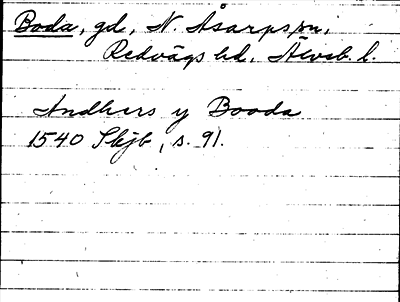 Boda, gd, N. Åsarps sn,
Redvägs hd, Älvsb. l.
Andhers y Booda
1540 Skjb, s. 91.